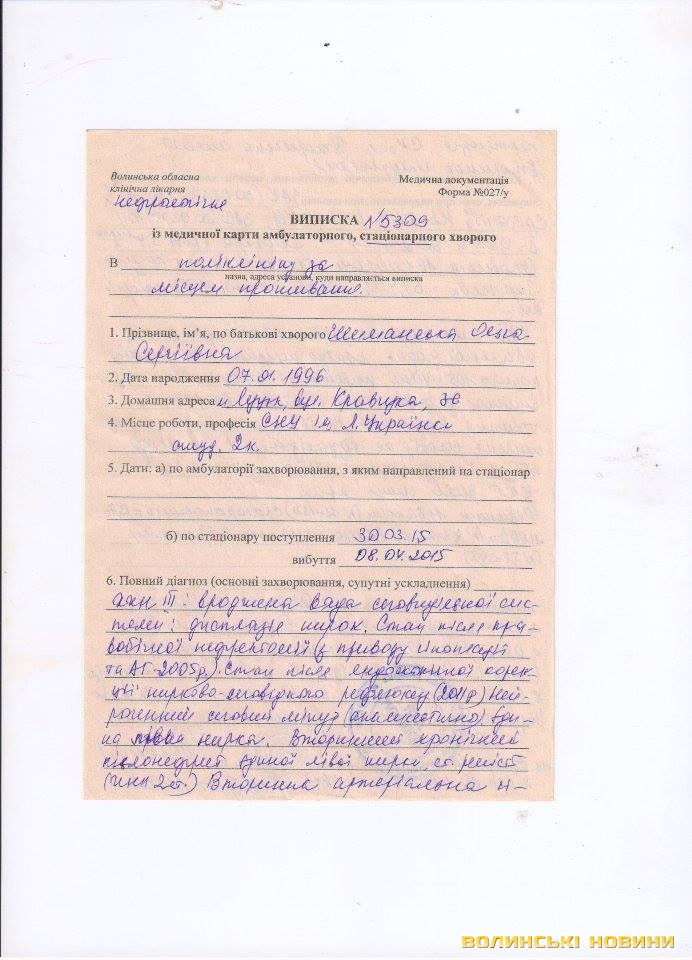 Волинська обласна
клінічна лікарня
нефрологічне
Медична документація
Форма №027/у
ВИПИСКА №5309
із медичної карти амбулаторного, стаціонарного хворого
В поліклініку за
назва, адреса установи, куди направляється виписка
місцем проживання.
1. Прізвище, ім'я, по батькові хворого Шиманська Ольга
Сергіївна
2. Дата народження 07.01.1996
3. Домашня адреса м Луцьк, вул. Кравчука,
4. Місце роботи, професія СНУ ім. Л. Українки
студ. 2к.
5. Дати: а) по амбулаторії захворювання, з яким направлений на стаціонар
б) по стаціонару поступлення 30.03.15
вибуття 08.04.2015
6. Повний діагноз (основні захворювання, супутні ускладнення)
ХХН III: вроджена вада сечовидільної сис-
теми: дисплазія нирок. Стан після пра-
вобічної нефректомії (з приводу гіпоплазії
та АГ-2005р.). Стан після ендоскопічної корек-
ції нирково-сечовідного рефлюксу (2011р) Ней-
рогенний сечовий міхур (анамнестично). Єди-
на ліва нирка. Вторинний хронічний
пієлонефрит єдиної лівої нирки, ст. ремісії
2ст.) Вторинна артеріальна гі-
ВОЛИНСЬКІ НОВИНИ